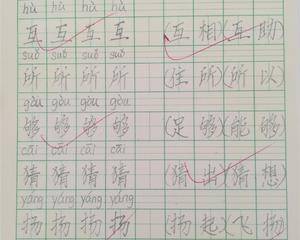 hù hù hù hù
互 互 互 互 (互 相)(互 助)
suǒ suǒ suǒ suǒ
所 所 所 所 (住 所)(所 以)
gòu gòu gòu gòu
够 够 够 够 (足 够)(能 够)
cāi cāi cāi cāi
猜 猜 猜 猜 (猜 出)(猜 想)
yáng yáng yáng yáng
扬 扬 扬 扬 (扬 起)(飞 扬)